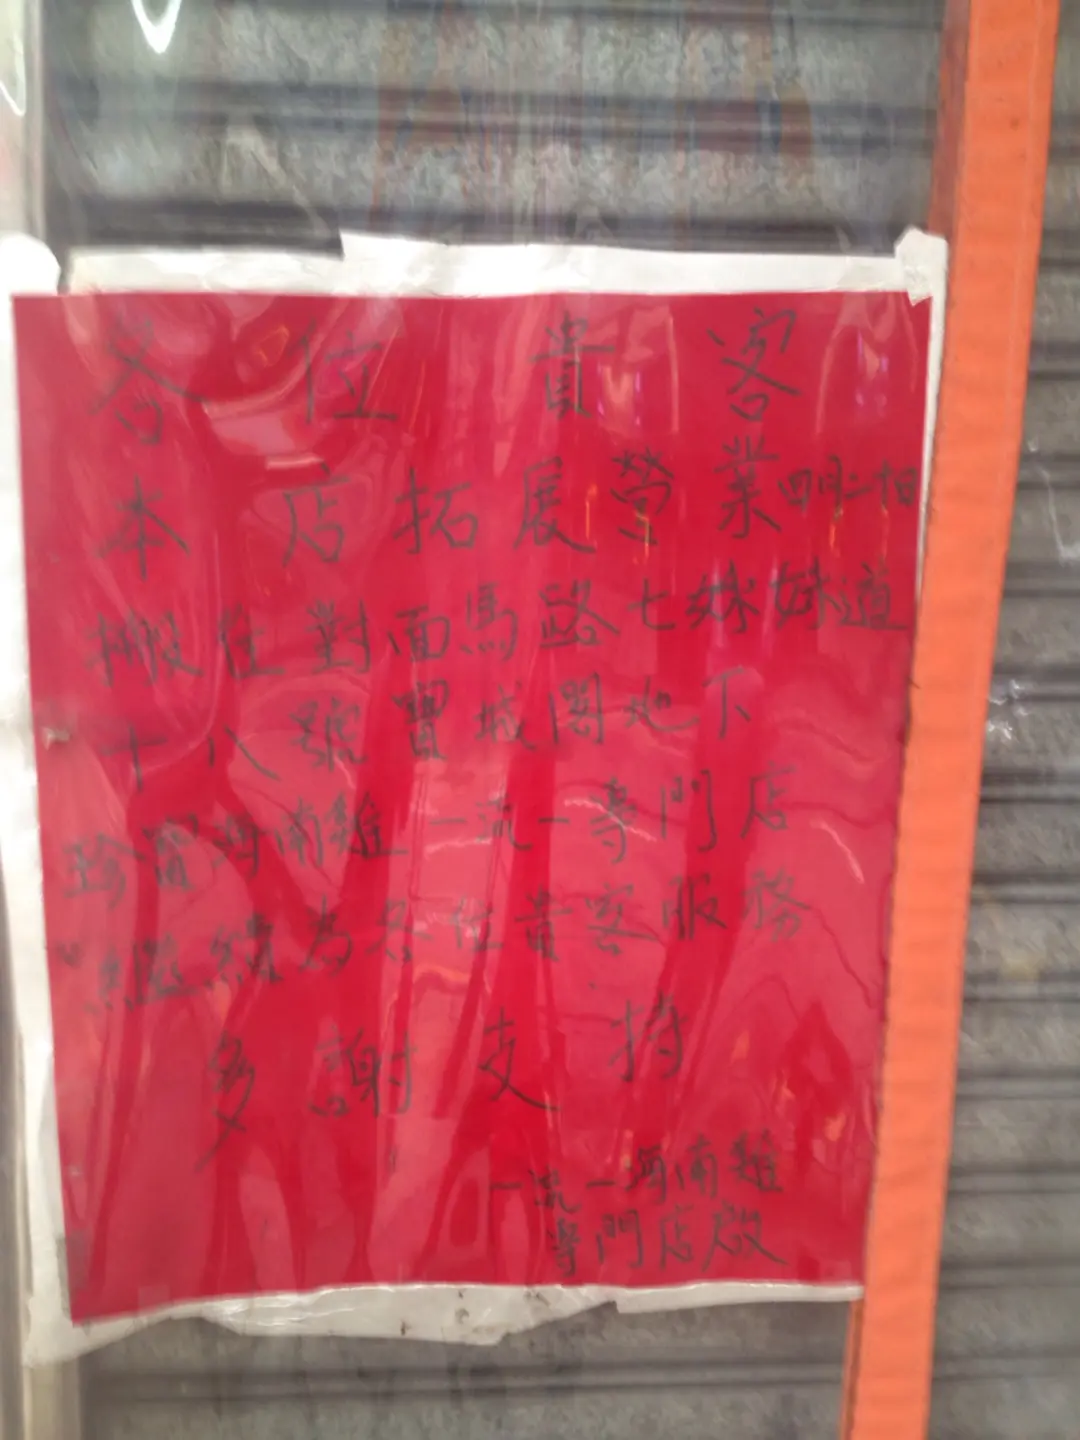 各位貴客
本店拓展營業四月二十日
搬往對面馬路七姊妹道
十八號寶城閣地下
珍寶海南雞一流一專門店
繼續為各位貴客服務
多謝支持
一流一海南雞
專門店啟